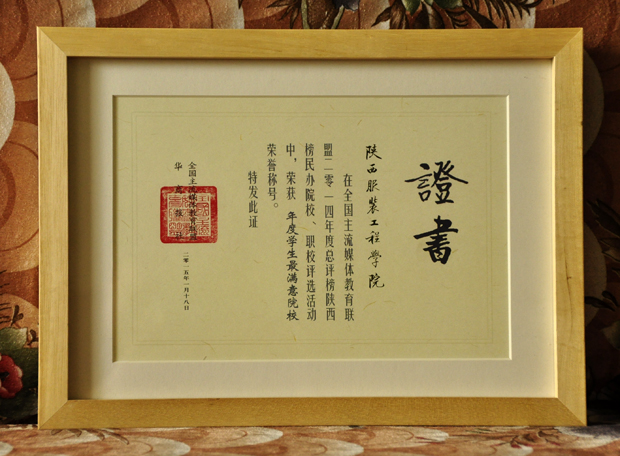 證書
陕西服装工程學院
在全国主流媒体教育联
盟二零一四年度总评榜陕西
榜民办院校、职校评选活动
中，荣获 年度学生最满意院校
荣誉称号。
特发此证
全国主流媒体教育联盟
华商报社
二零一五年一月十八日